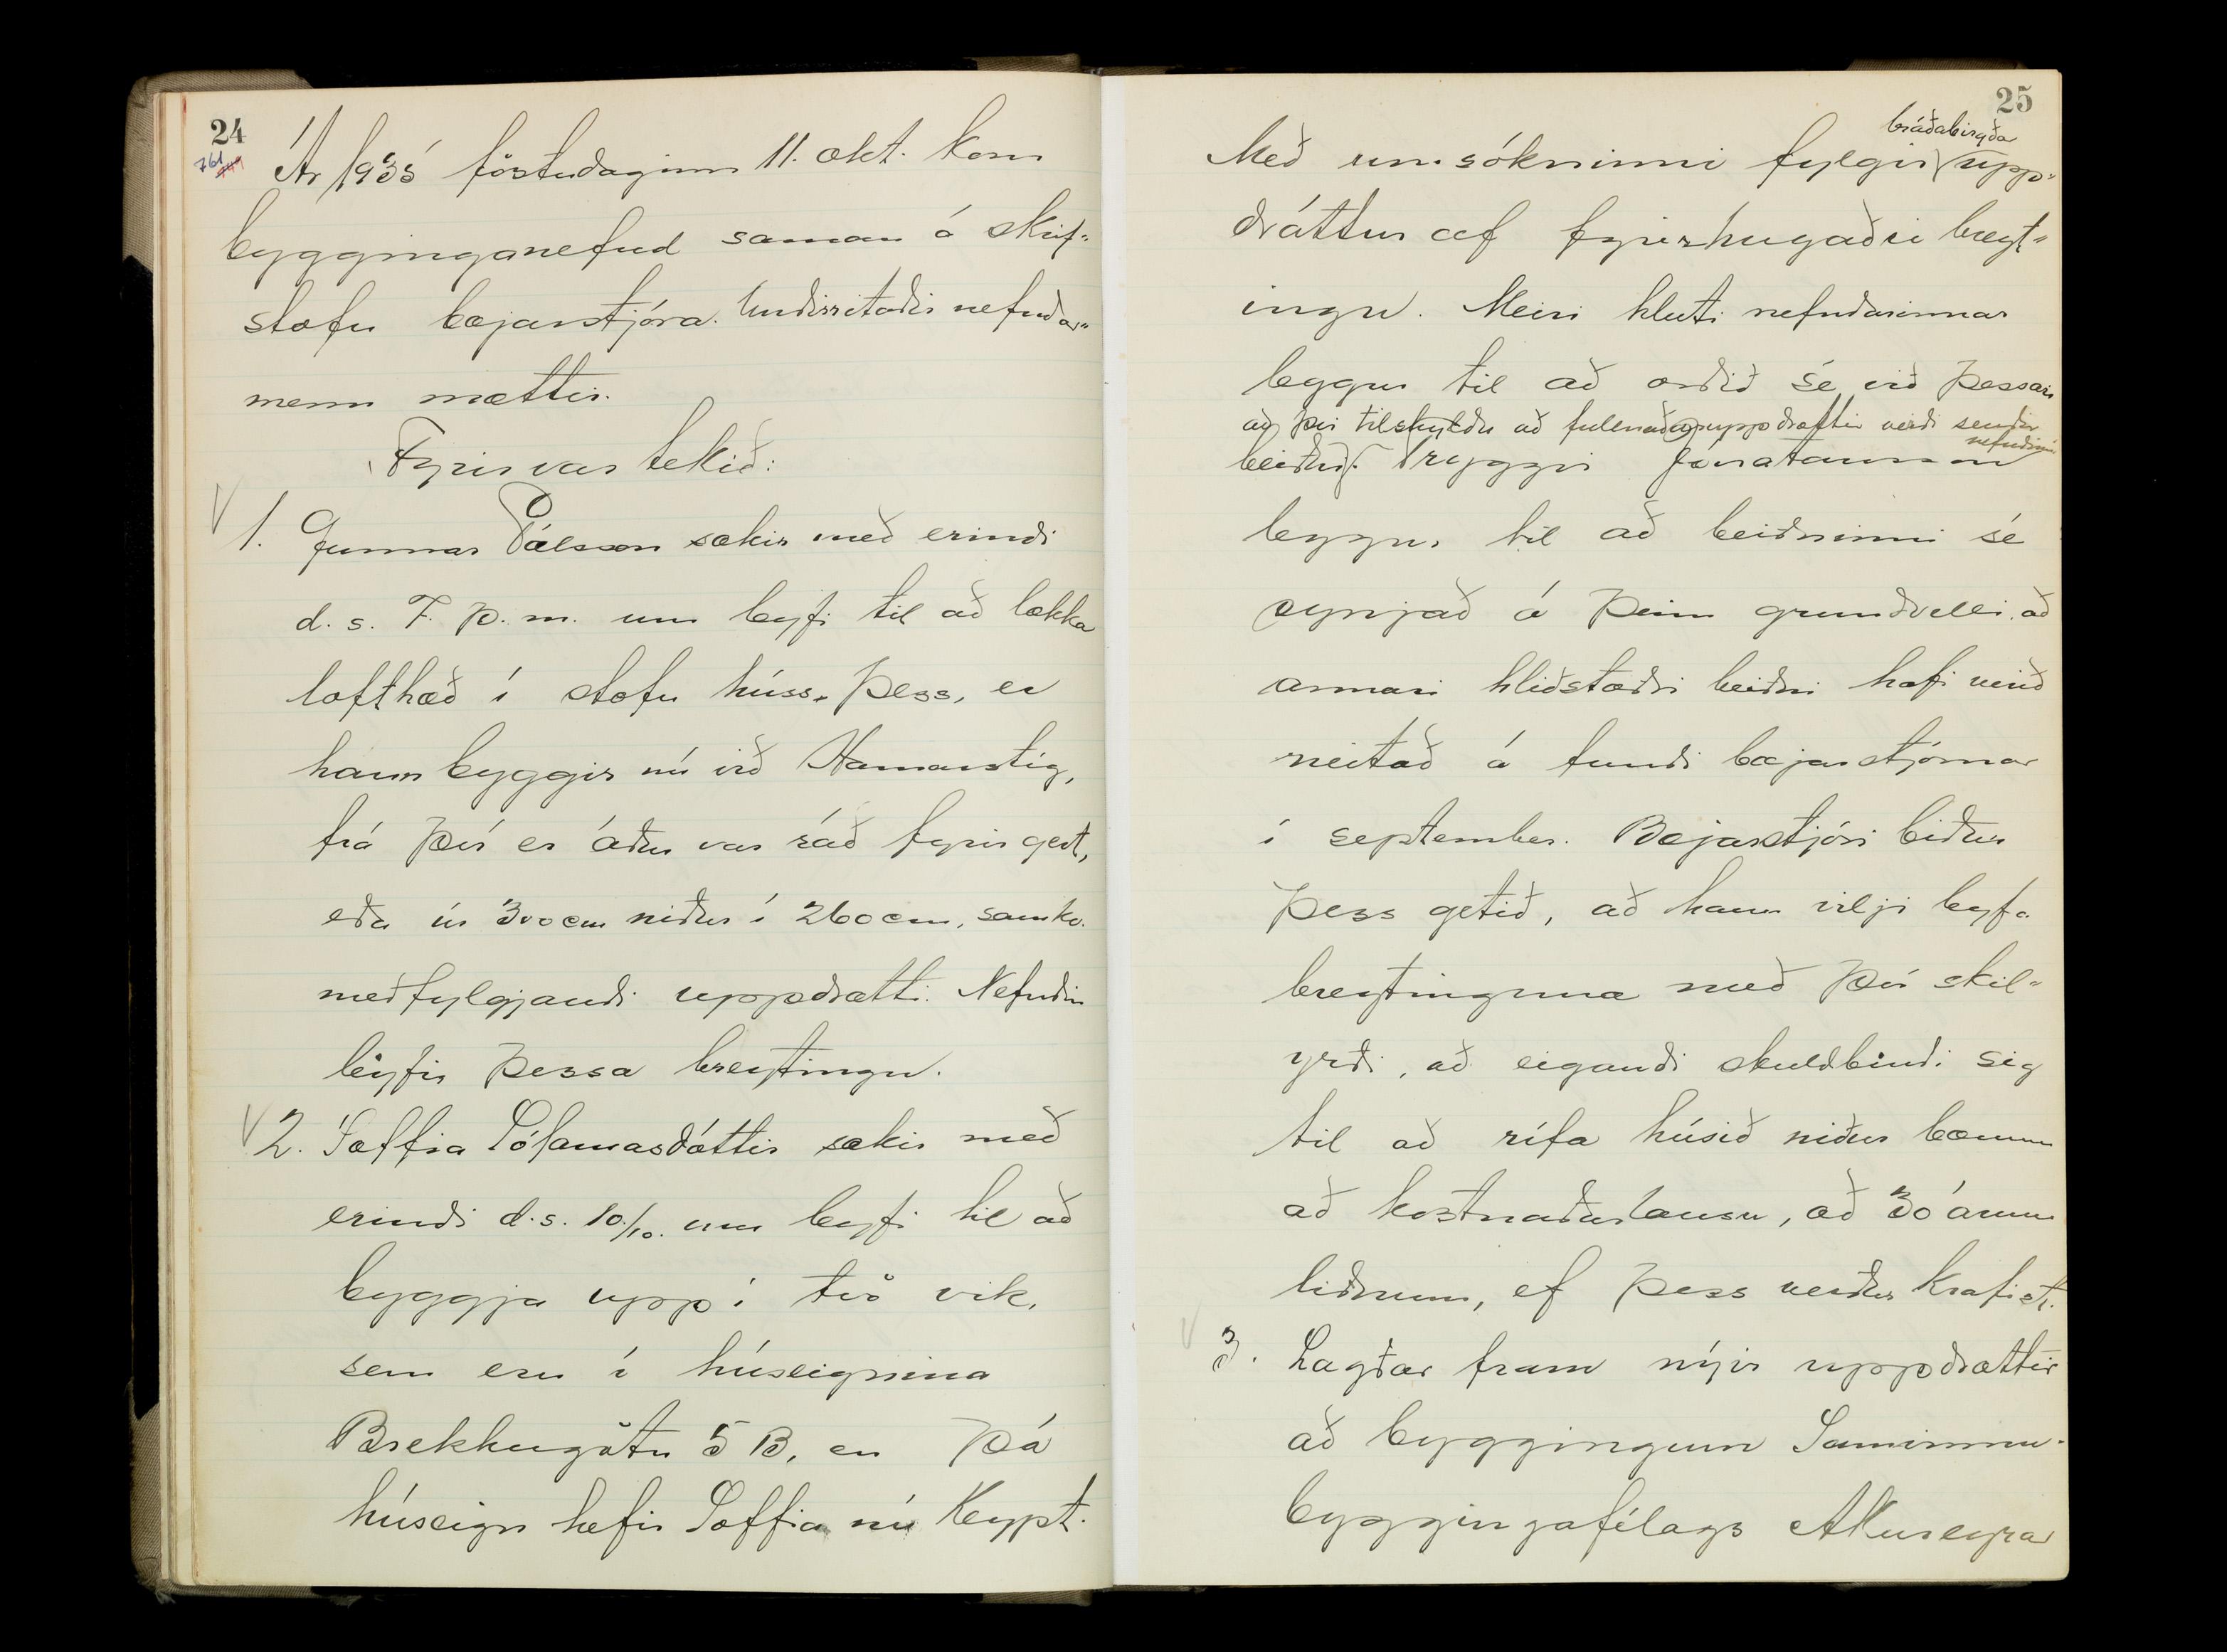 24
761
Ár 1935 föstudaginn 11. okt. kom
bygginganefnd saman á skrif-
stofu bæjarstjóra. Undirritaðir nefndar-
menn mættir.
Fyrir var tekið:
V 1. Gunnar Pálsson sækir með erindi
d. s. F. þ. m. um leyfi til að lækka
lofthæð í stofu húss þess, er
hann byggir nú við Hamarstíg,
frá því er áður var ráð fyrir gert,
eða úr 300 cm niður í 260 cm, samkv.
meðfylgjandi uppdrætti. Nefndin
leyfir þessa breytingu.
V 2. Soffia Jóhannasdóttir sækir með
erindi d. s. 10/10. um leyfi til að
byggja upp í tvö vik,
sem eru í húseignina
Brekkugötu 5 B, en þá
húseign hefir Soffia nú keypt.
25
bráðabirgða
Með umsókninni fylgir upp-
dráttur af fyrirhugaðri breyt-
ingu. Meiri hluti nefndarinnar
leggur til að orðið sé við þessari
að því tilskyldu að fullnaðaruppdrættir verði sendir
nefndinni
beiðni. Tryggvi Jónatansson
leggur til að beiðninni sé
synjað á þeim grundvelli, að
annari hliðstæðri beiðni hafi verið
neitað á fundi bæjarstjórnar
í september. Bæjarstjóri biður
þess getið, að hann vilji leyfa
breytinguna með því skil-
yrði, að eigandi skuldbindi sig
til að rífa húsið niður bænum
að kostnaðarlausu, að 30 árum
liðnum, ef þess verður krafist.
V 3. Lagðar fram nýir uppdrættir
að byggingum Samvinnu-
byggingafélags Akureyrar